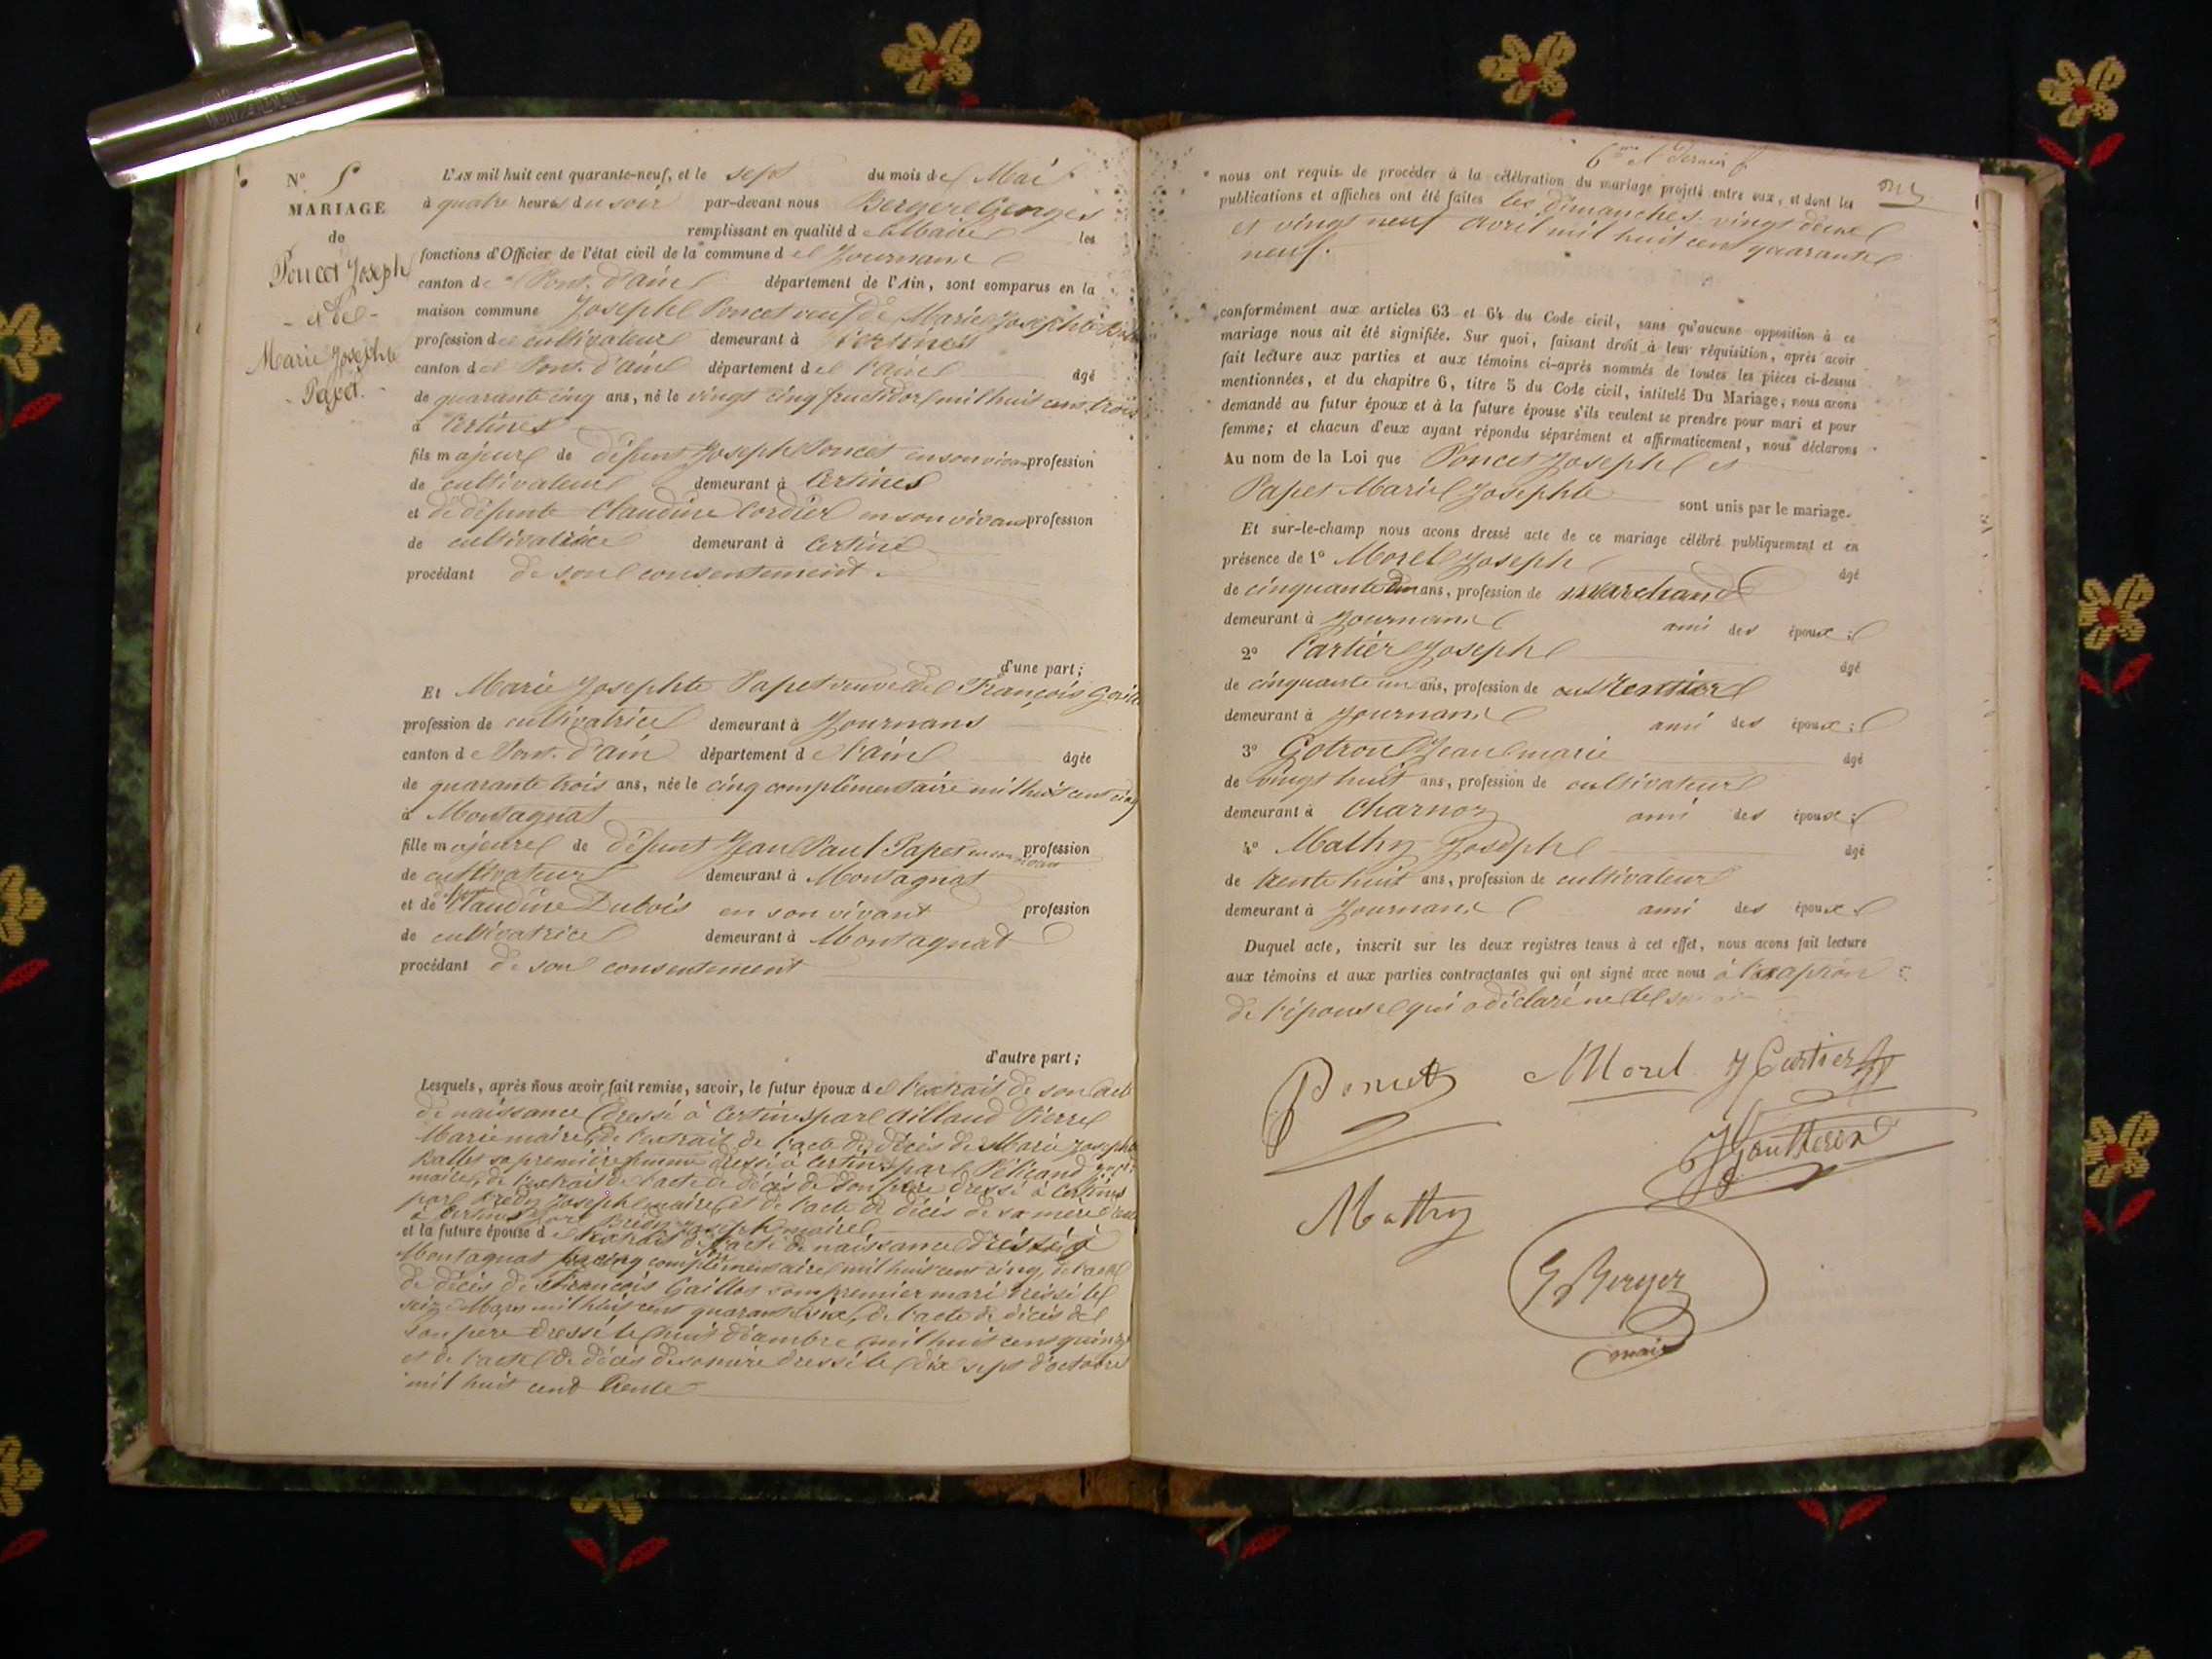 N° 5
MARIAGE
de
Poncet Joseph
- et de -
Marie Josephte
- Papet. -
L'AN mil huit cent quarante-neuf, et le sept du mois de Mai
à quatre heures du soir par-devant nous Berger Georges
remplissant en qualité de Maire les
fonctions d'Officier de l'état civil de la commune de Journans
canton de Pont-d'ain département de l'Ain, sont comparus en la
maison commune Joseph Poncet veuf de Marie Josephte
profession de cultivateur demeurant à Certines
canton de Pont-d'ain département de l'ain âgé
de quarante cinq ans, né le vingt cinq fructidor mil huit cent trois
à Certines
fils majeur de défunt Joseph Poncet en son vivant profession
de cultivateur demeurant à Certines
et de défunte Claudine Cordier en son vivant profession
de cultivatrice demeurant à Certine
procédant de son consentement.
d'une part;
Et Marie Josephte Papet veuve de François
profession de cultivatrice demeurant à Journans
canton de Pont-d'ain département de l'ain âgée
de quarante trois ans, née le cinq complémentaire mil huit cent cinq
à Montagnat
fille majeure de défunt Jean Paul Papet en son vivant profession
de cultivateur demeurant à Montagnat
et de défunte Claudine Dubois en son vivant profession
de cultivatrice demeurant à Montagnat
procédant de son consentement
d'autre part;
Lesquels, après nous avoir fait remise, savoir, le futur époux de l'extrait de son acte
de naissance dressé à Certines par Aillaud Pierre
Marie maire, de l'extrait de l'acte de décès de Marie Josephte
sa première femme dressé à Certines par
maire, de l'extrait de l'acte de décès de son père dressé à Certines
par Joseph maire et de l'acte de décès de sa mère
à Certines par Joseph maire
et la future épouse de l'extrait de l'acte de naissance dressé à
Montagnat le cinq complémentaire mil huit cent cinq, de l'acte
de décès de François Gaillos son premier mari dressé le
seize Mars mil huit cent quarante six, de l'acte de décès de
son père dressé le huit décembre mil huit cent quinze
et de l'acte de décès de sa mère dressé le dix sept d'octobre
mil huit cent trente
6me et dernier f
nous ont requis de procéder à la célébration du mariage projeté entre eux, et dont les
publications et affiches ont été faites les dimanches vingt deux
et vingt neuf avril mil huit cent quarante
neuf.
conformément aux articles 63 et 64 du Code civil, sans qu'aucune opposition à ce
mariage nous ait été signifiée. Sur quoi, faisant droit à leur réquisition, après avoir
fait lecture aux parties et aux témoins ci-après nommés de toutes les pièces ci-dessus
mentionnées, et du chapitre 6, titre 5 du Code civil, intitulé Du Mariage, nous avons
demandé au futur époux et à la future épouse s'ils veulent se prendre pour mari et pour
femme; et chacun d'eux ayant répondu séparément et affirmativement, nous déclarons
Au nom de la Loi que Poncet Joseph et
Papet Marie Josephte sont unis par le mariage.
Et sur-le-champ nous avons dressé acte de ce mariage célébré publiquement et en
présence de 1° Morel Joseph âgé
de cinquante un ans, profession de marchand
demeurant à Journans ami des époux;
2° Cartier Joseph âgé
de cinquante un ans, profession de rentier
demeurant à Journans ami des époux;
3° Gotron Jean marie âgé
de vingt huit ans, profession de cultivateur
demeurant à Charnoz ami des époux;
4° Mathy Joseph âgé
de trente huit ans, profession de cultivateur
demeurant à Journans ami des époux
Duquel acte, inscrit sur les deux registres tenus à cet effet, nous avons fait lecture
aux témoins et aux parties contractantes qui ont signé avec nous à l'exeption
de l'épouse qui a déclaré ne le
Poncet
Morel
J Cartier
Mathy
G Berger
maire